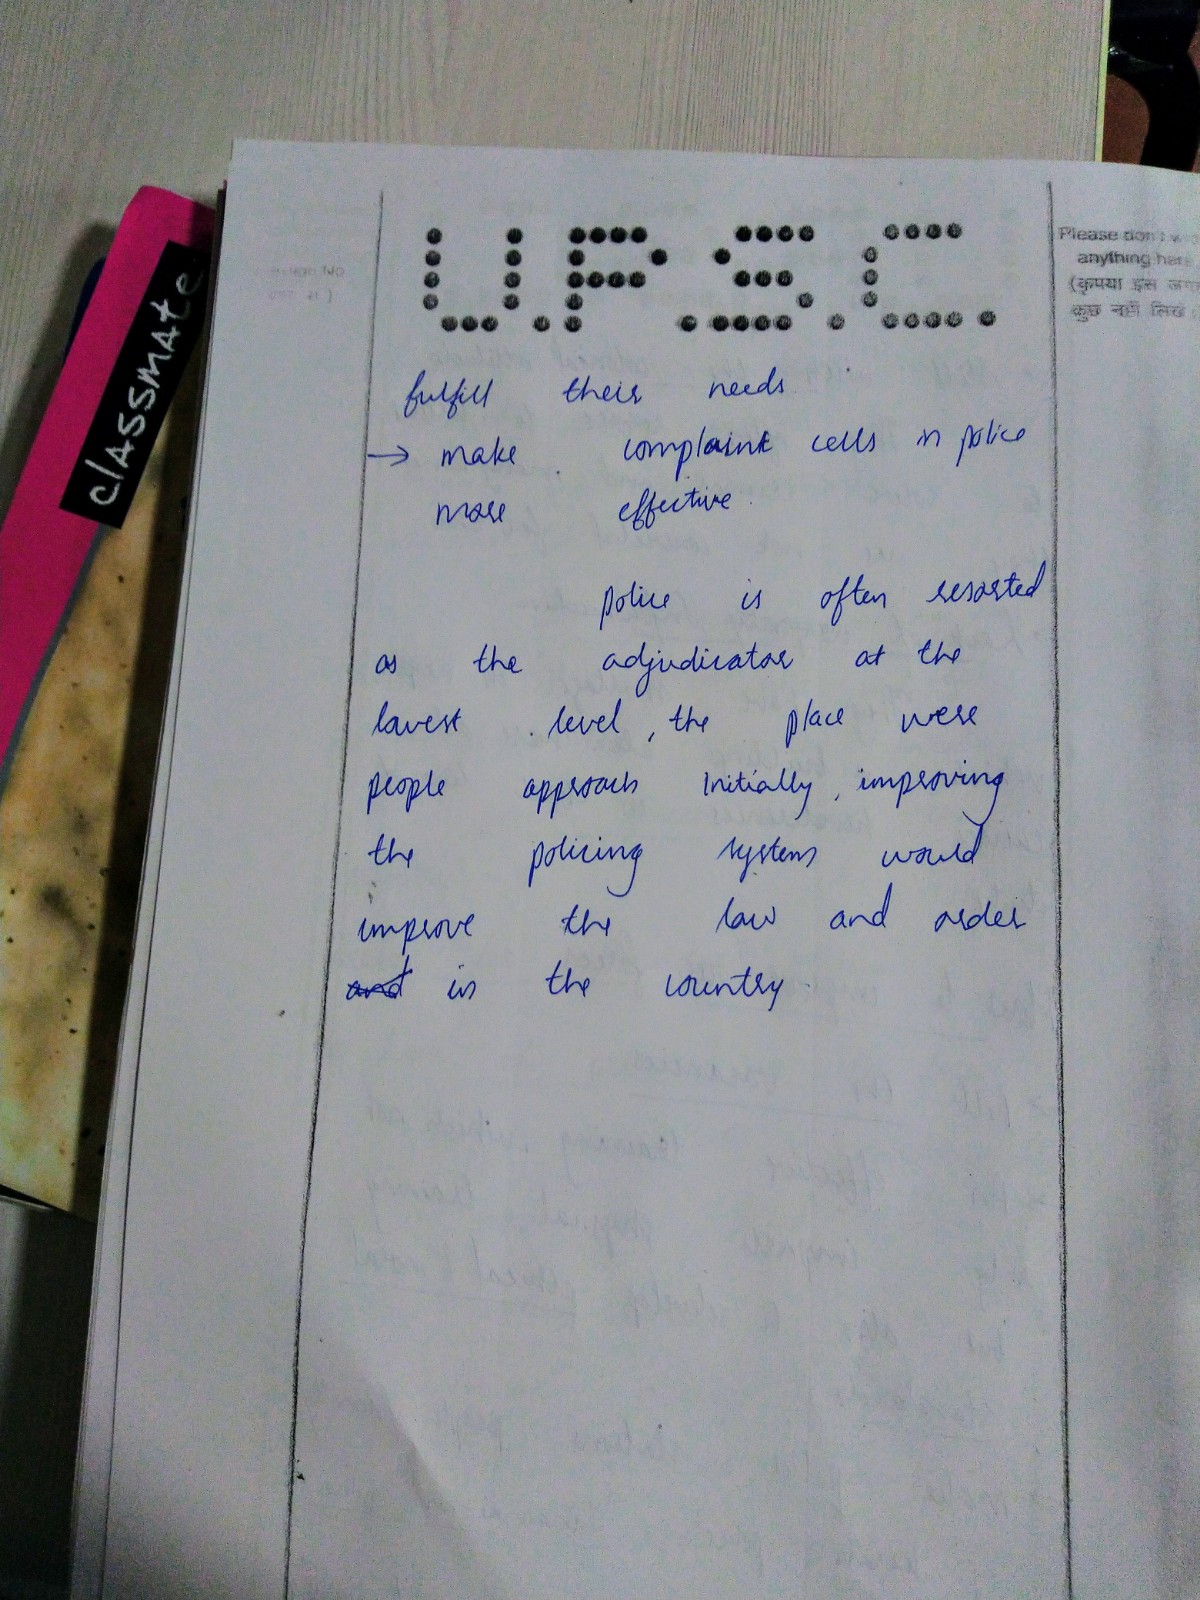 classmate
U.P.S.C.
Please don't
anything here
(कृपया इस
कुछ नहीं लिखें
fulfill their needs
→ make complaint cells in police
more effective.
police is often resorted
as the adjudicator at the
lowest level, the place were
people approach initially, improving
the policing system would
improve the law and order
and in the country.